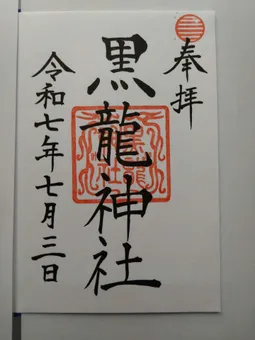 奉拝
黒龍神社
令和七年七月三日